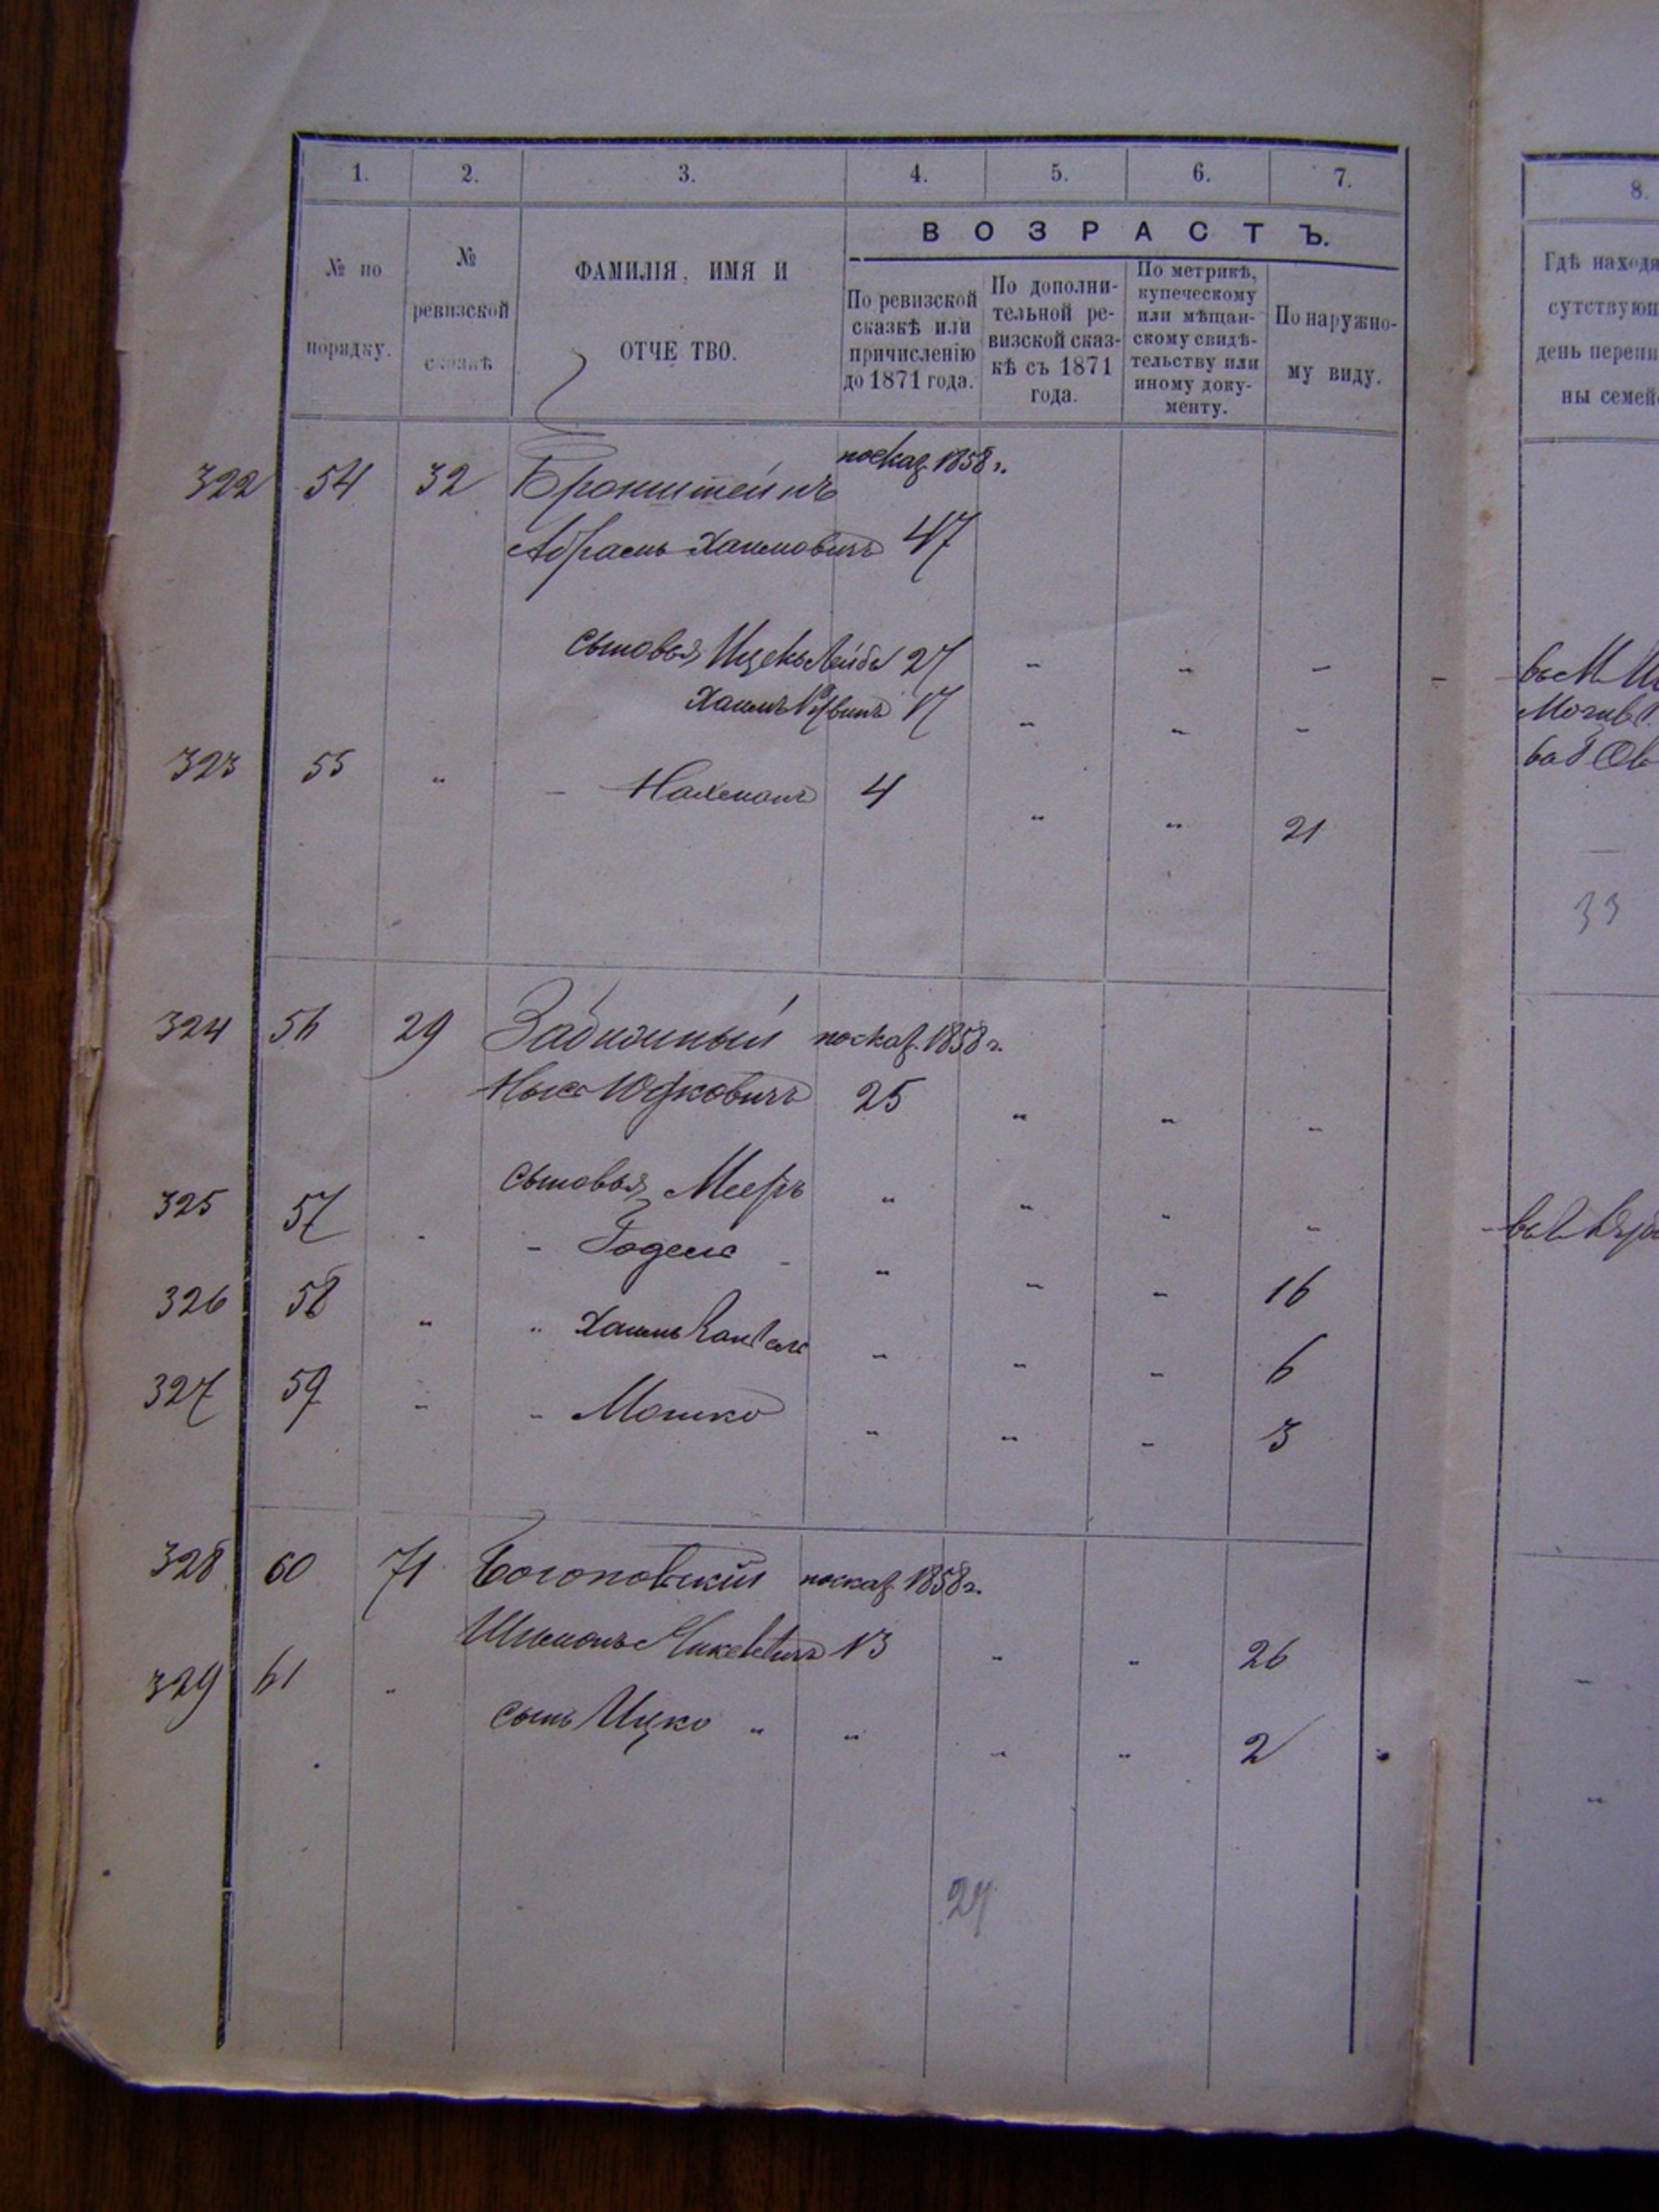 1. 2. 3. 4. 5. 6. 7.
8.
№ по порядку.
№ ревизской сказкѣ
ФАМИЛІЯ, ИМЯ И ОТЧЕ ТВО.
ВОЗРАСТЪ.
По ревизской сказкѣ или причисленію до 1871 года.
По дополнительной ревизской сказкѣ съ 1871 года.
По метрикѣ, купеческому или мѣщанскому свидѣтельству или иному документу.
По наружному виду.
Гдѣ находя
сутствующ
день переп
ны семей
322 54 32 Бронштейнъ по сказ. 1858 г.
Абрамъ Хаимовичъ 47
сыновья Ицекъ Лейба 27 - - -
Хаимъ 17 - - -
323 55 " - Нахманъ 4 " " 21
33
324 56 29 по сказ. 1858 г.
Юдковичъ 25 " " "
сыновья Мееръ " " " "
325 57 - - " - - 16
326 58 " " Хаимъ " " " 6
327 59 - - Мошко " " - 3
328 60 71 по сказ. 1858 г.
13 " " 26
329 61 " сынъ Ицко " " " " 2
27